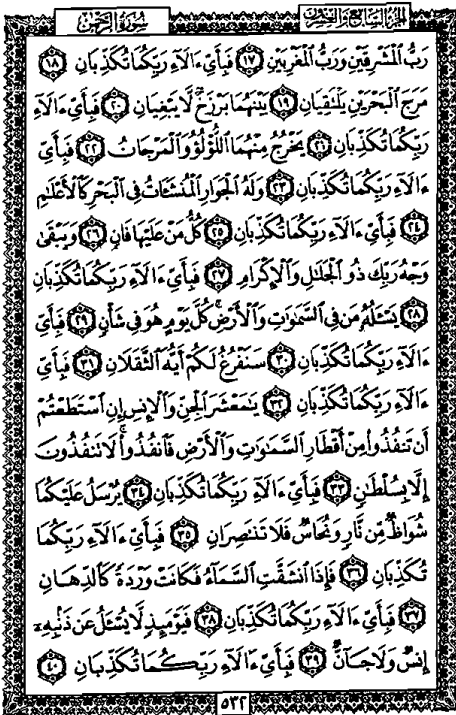 سُورَةُ الرَّحْمٰن الجُزءُ السَّابِعُ وَالعِشْرُونَ
رَبُّ ٱلْمَشْرِقَيْنِ وَرَبُّ ٱلْمَغْرِبَيْنِ ١٧ فَبِأَيِّ ءَالَآءِ رَبِّكُمَا تُكَذِّبَانِ ١٨
مَرَجَ ٱلْبَحْرَيْنِ يَلْتَقِيَانِ ١٩ بَيْنَهُمَا بَرْزَخٌ لَّا يَبْغِيَانِ ٢٠ فَبِأَيِّ ءَالَآءِ
رَبِّكُمَا تُكَذِّبَانِ ٢١ يَخْرُجُ مِنْهُمَا ٱللُّؤْلُؤُ وَٱلْمَرْجَانُ ٢٢ فَبِأَيِّ
ءَالَآءِ رَبِّكُمَا تُكَذِّبَانِ ٢٣ وَلَهُ ٱلْجَوَارِ ٱلْمُنشَـَٔاتُ فِي ٱلْبَحْرِ كَٱلْأَعْلَٰمِ
٢٤ فَبِأَيِّ ءَالَآءِ رَبِّكُمَا تُكَذِّبَانِ ٢٥ كُلُّ مَنْ عَلَيْهَا فَانٍ ٢٦ وَيَبْقَىٰ
وَجْهُ رَبِّكَ ذُو ٱلْجَلَٰلِ وَٱلْإِكْرَامِ ٢٧ فَبِأَيِّ ءَالَآءِ رَبِّكُمَا تُكَذِّبَانِ
٢٨ يَسْـَٔلُهُۥ مَن فِي ٱلسَّمَٰوَٰتِ وَٱلْأَرْضِ ۚ كُلَّ يَوْمٍ هُوَ فِي شَأْنٍ ٢٩ فَبِأَيِّ
ءَالَآءِ رَبِّكُمَا تُكَذِّبَانِ ٣٠ سَنَفْرُغُ لَكُمْ أَيُّهَ ٱلثَّقَلَانِ ٣١ فَبِأَيِّ
ءَالَآءِ رَبِّكُمَا تُكَذِّبَانِ ٣٢ يَٰمَعْشَرَ ٱلْجِنِّ وَٱلْإِنسِ إِنِ ٱسْتَطَعْتُمْ
أَن تَنفُذُوا۟ مِنْ أَقْطَارِ ٱلسَّمَٰوَٰتِ وَٱلْأَرْضِ فَٱنفُذُوا۟ ۚ لَا تَنفُذُونَ
إِلَّا بِسُلْطَٰنٍ ٣٣ فَبِأَيِّ ءَالَآءِ رَبِّكُمَا تُكَذِّبَانِ ٣٤ يُرْسَلُ عَلَيْكُمَا
شُوَاظٌ مِّن نَّارٍ وَنُحَاسٌ فَلَا تَنتَصِرَانِ ٣٥ فَبِأَيِّ ءَالَآءِ رَبِّكُمَا
تُكَذِّبَانِ ٣٦ فَإِذَا ٱنشَقَّتِ ٱلسَّمَآءُ فَكَانَتْ وَرْدَةً كَٱلدِّهَانِ
٣٧ فَبِأَيِّ ءَالَآءِ رَبِّكُمَا تُكَذِّبَانِ ٣٨ فَيَوْمَئِذٍ لَّا يُسْـَٔلُ عَن ذَنۢبِهِۦٓ
إِنسٌ وَلَا جَآنٌّ ٣٩ فَبِأَيِّ ءَالَآءِ رَبِّكُمَا تُكَذِّبَانِ ٤٠
٥٣٢